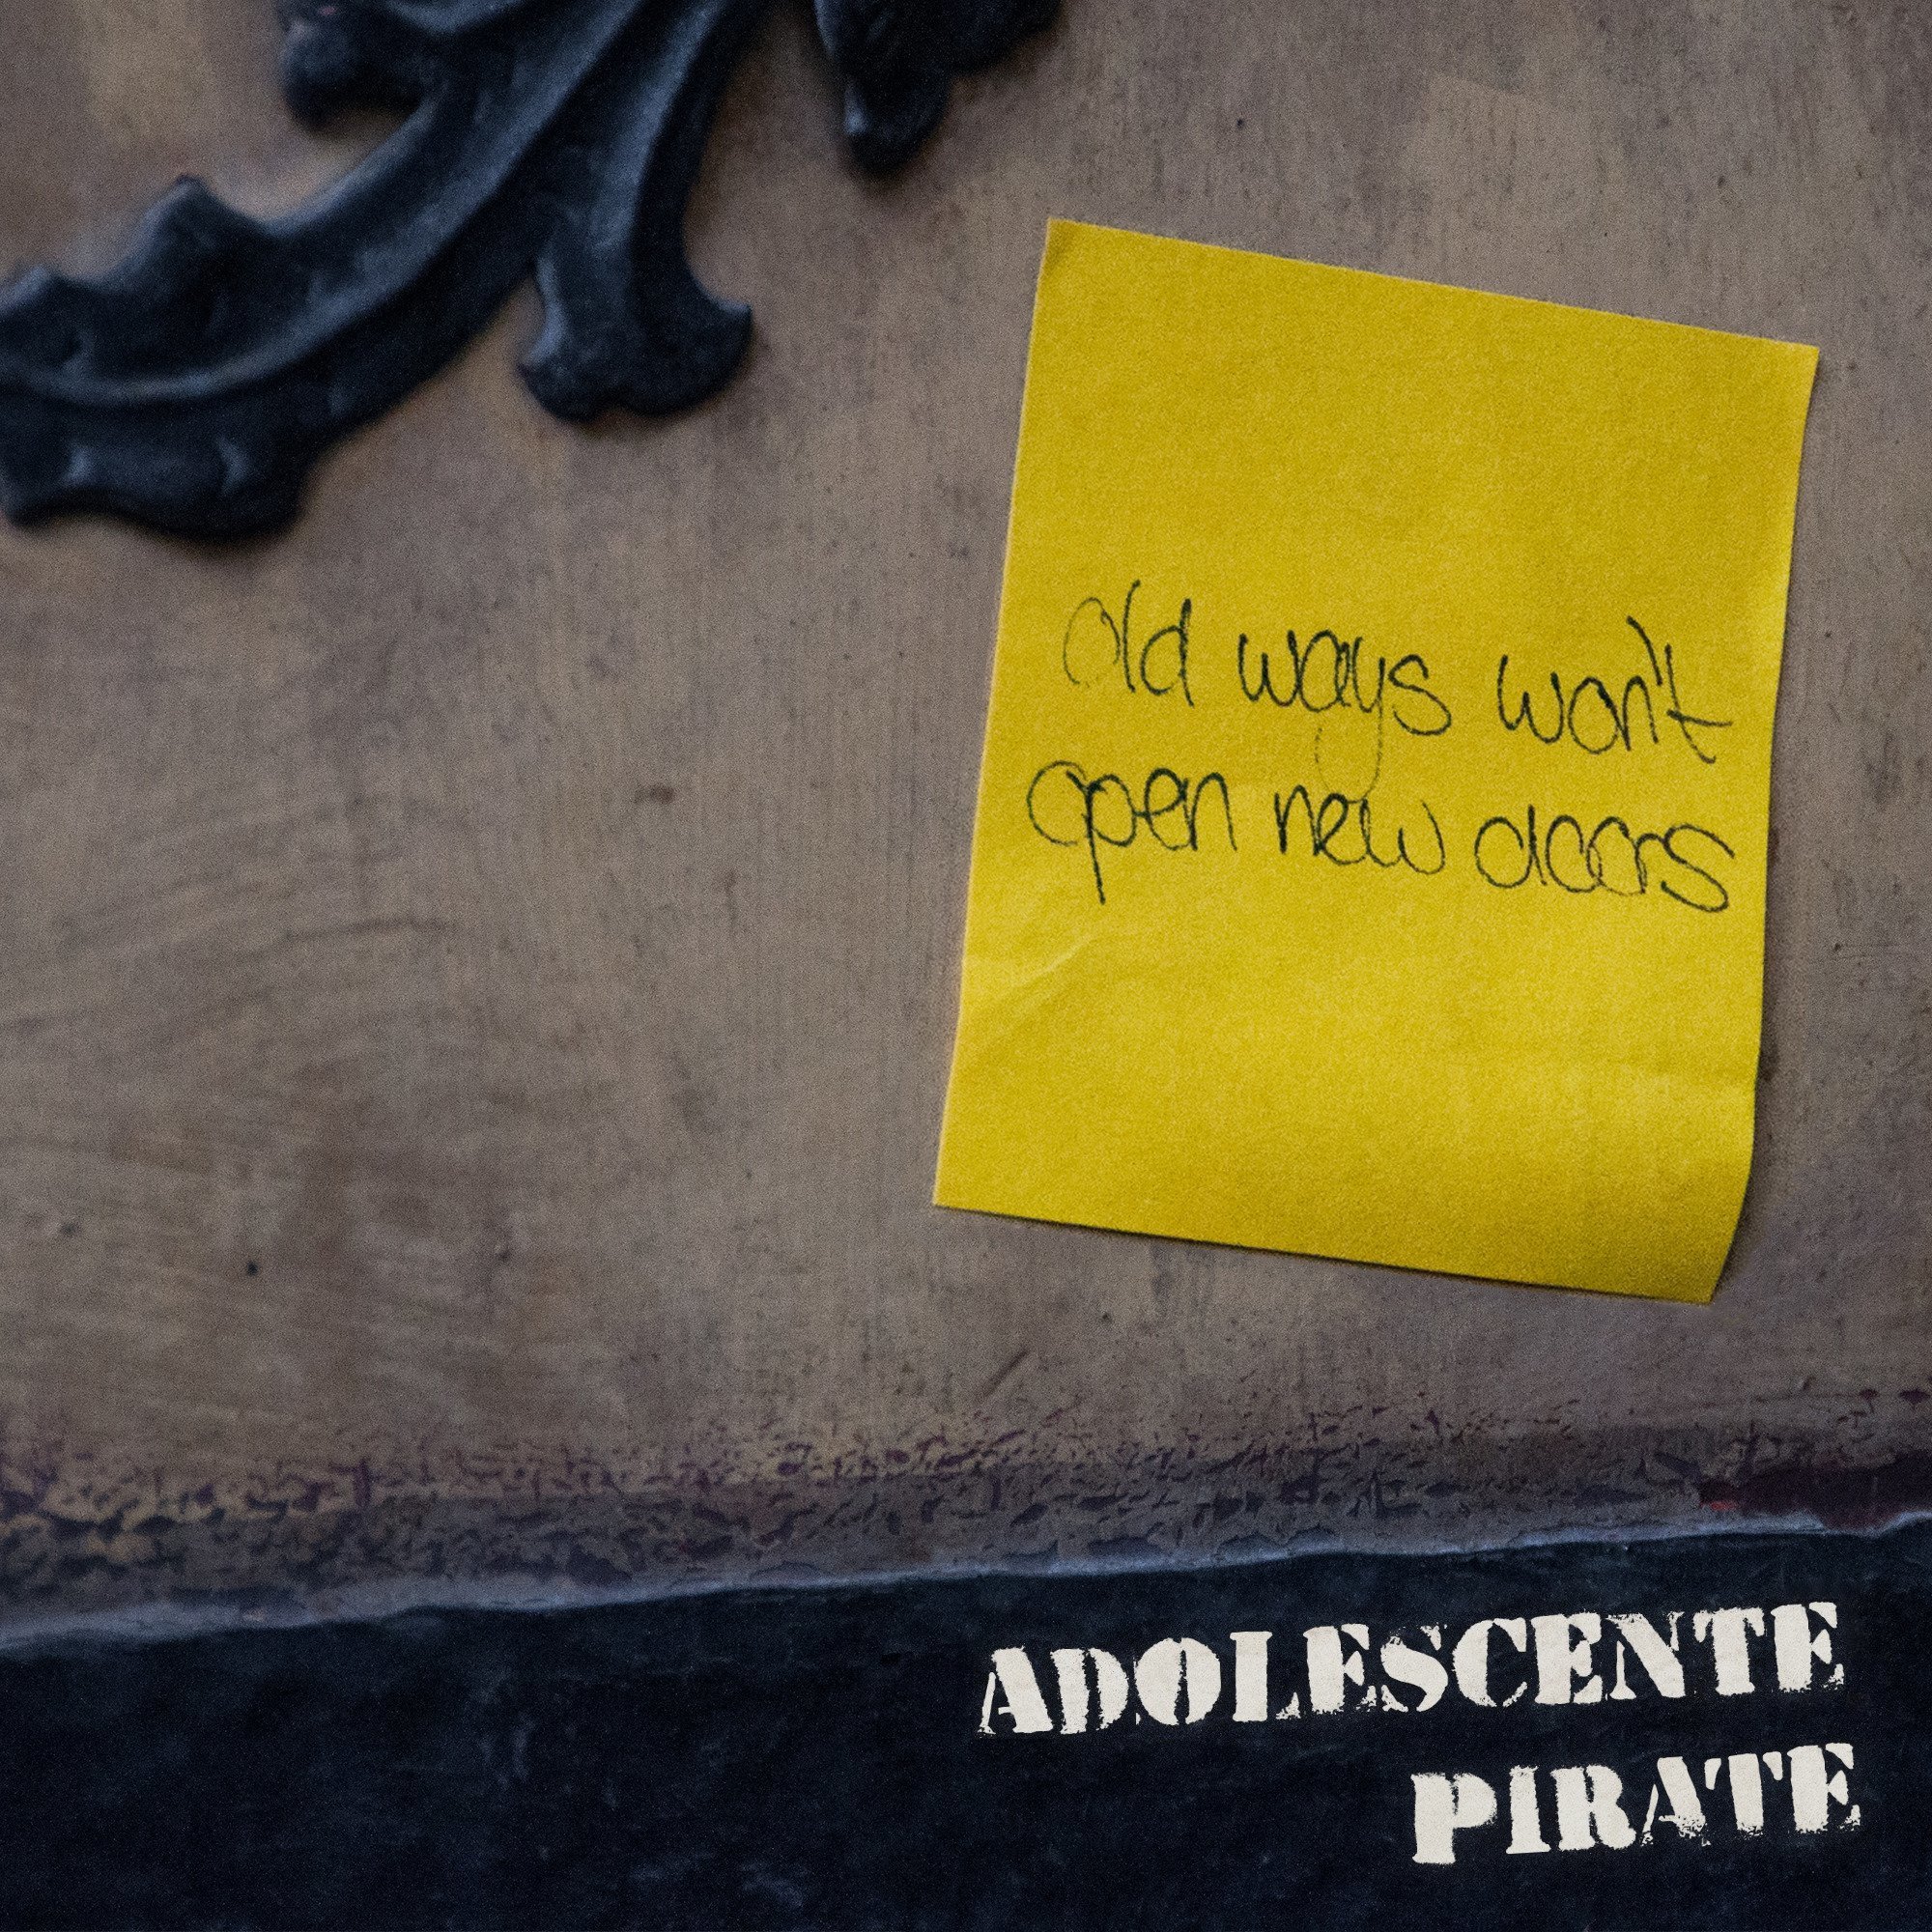 old ways won't
open new doors
ADOLESCENTE
PIRATE